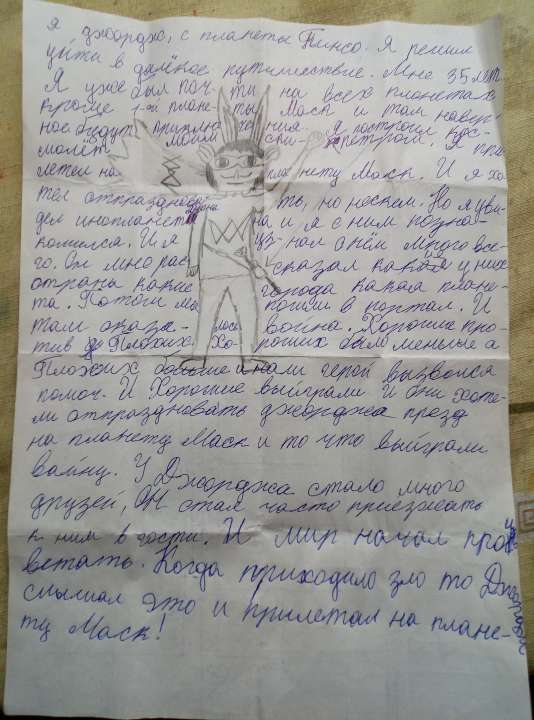 Я джордж, с планеты Пинсо. Я решил
уйти в далёкое путишествие. Мне 35 лет
Я уже был поч ти на всех планетах
кроме 1-ой плане- ты Маск и там наверное
ное будут приключе ния. Я построил кос-
молёт моим скипетром. Я при
летел на планету Маск. И я хо
тел отпраздно ть, но нескем. Но я уви-
дел инопланет на и я с ним позна-
комился. И я уз нал о нём много все-
го. Он мне рас сказал какая у них
страна какие города какая плане-
та. Потом мы пошли в портал. И
там оказа- лось война. Хороших про-
тив Плохих Хо- роших было меньше а
Плохих больше и наш герой вызволся
помоч. И Хорошие выйграли И они хоте-
ли отпраздновать джорджа презд
на планету Маск и то что выйграли
вайну. У Джорджа стало много
друзей, Он стал часто приезжать
к ним в гости. И мир начал проц
ветать. Когда приходило зло то Джордж
слышал это и прилетал на плане-
ту Маск!